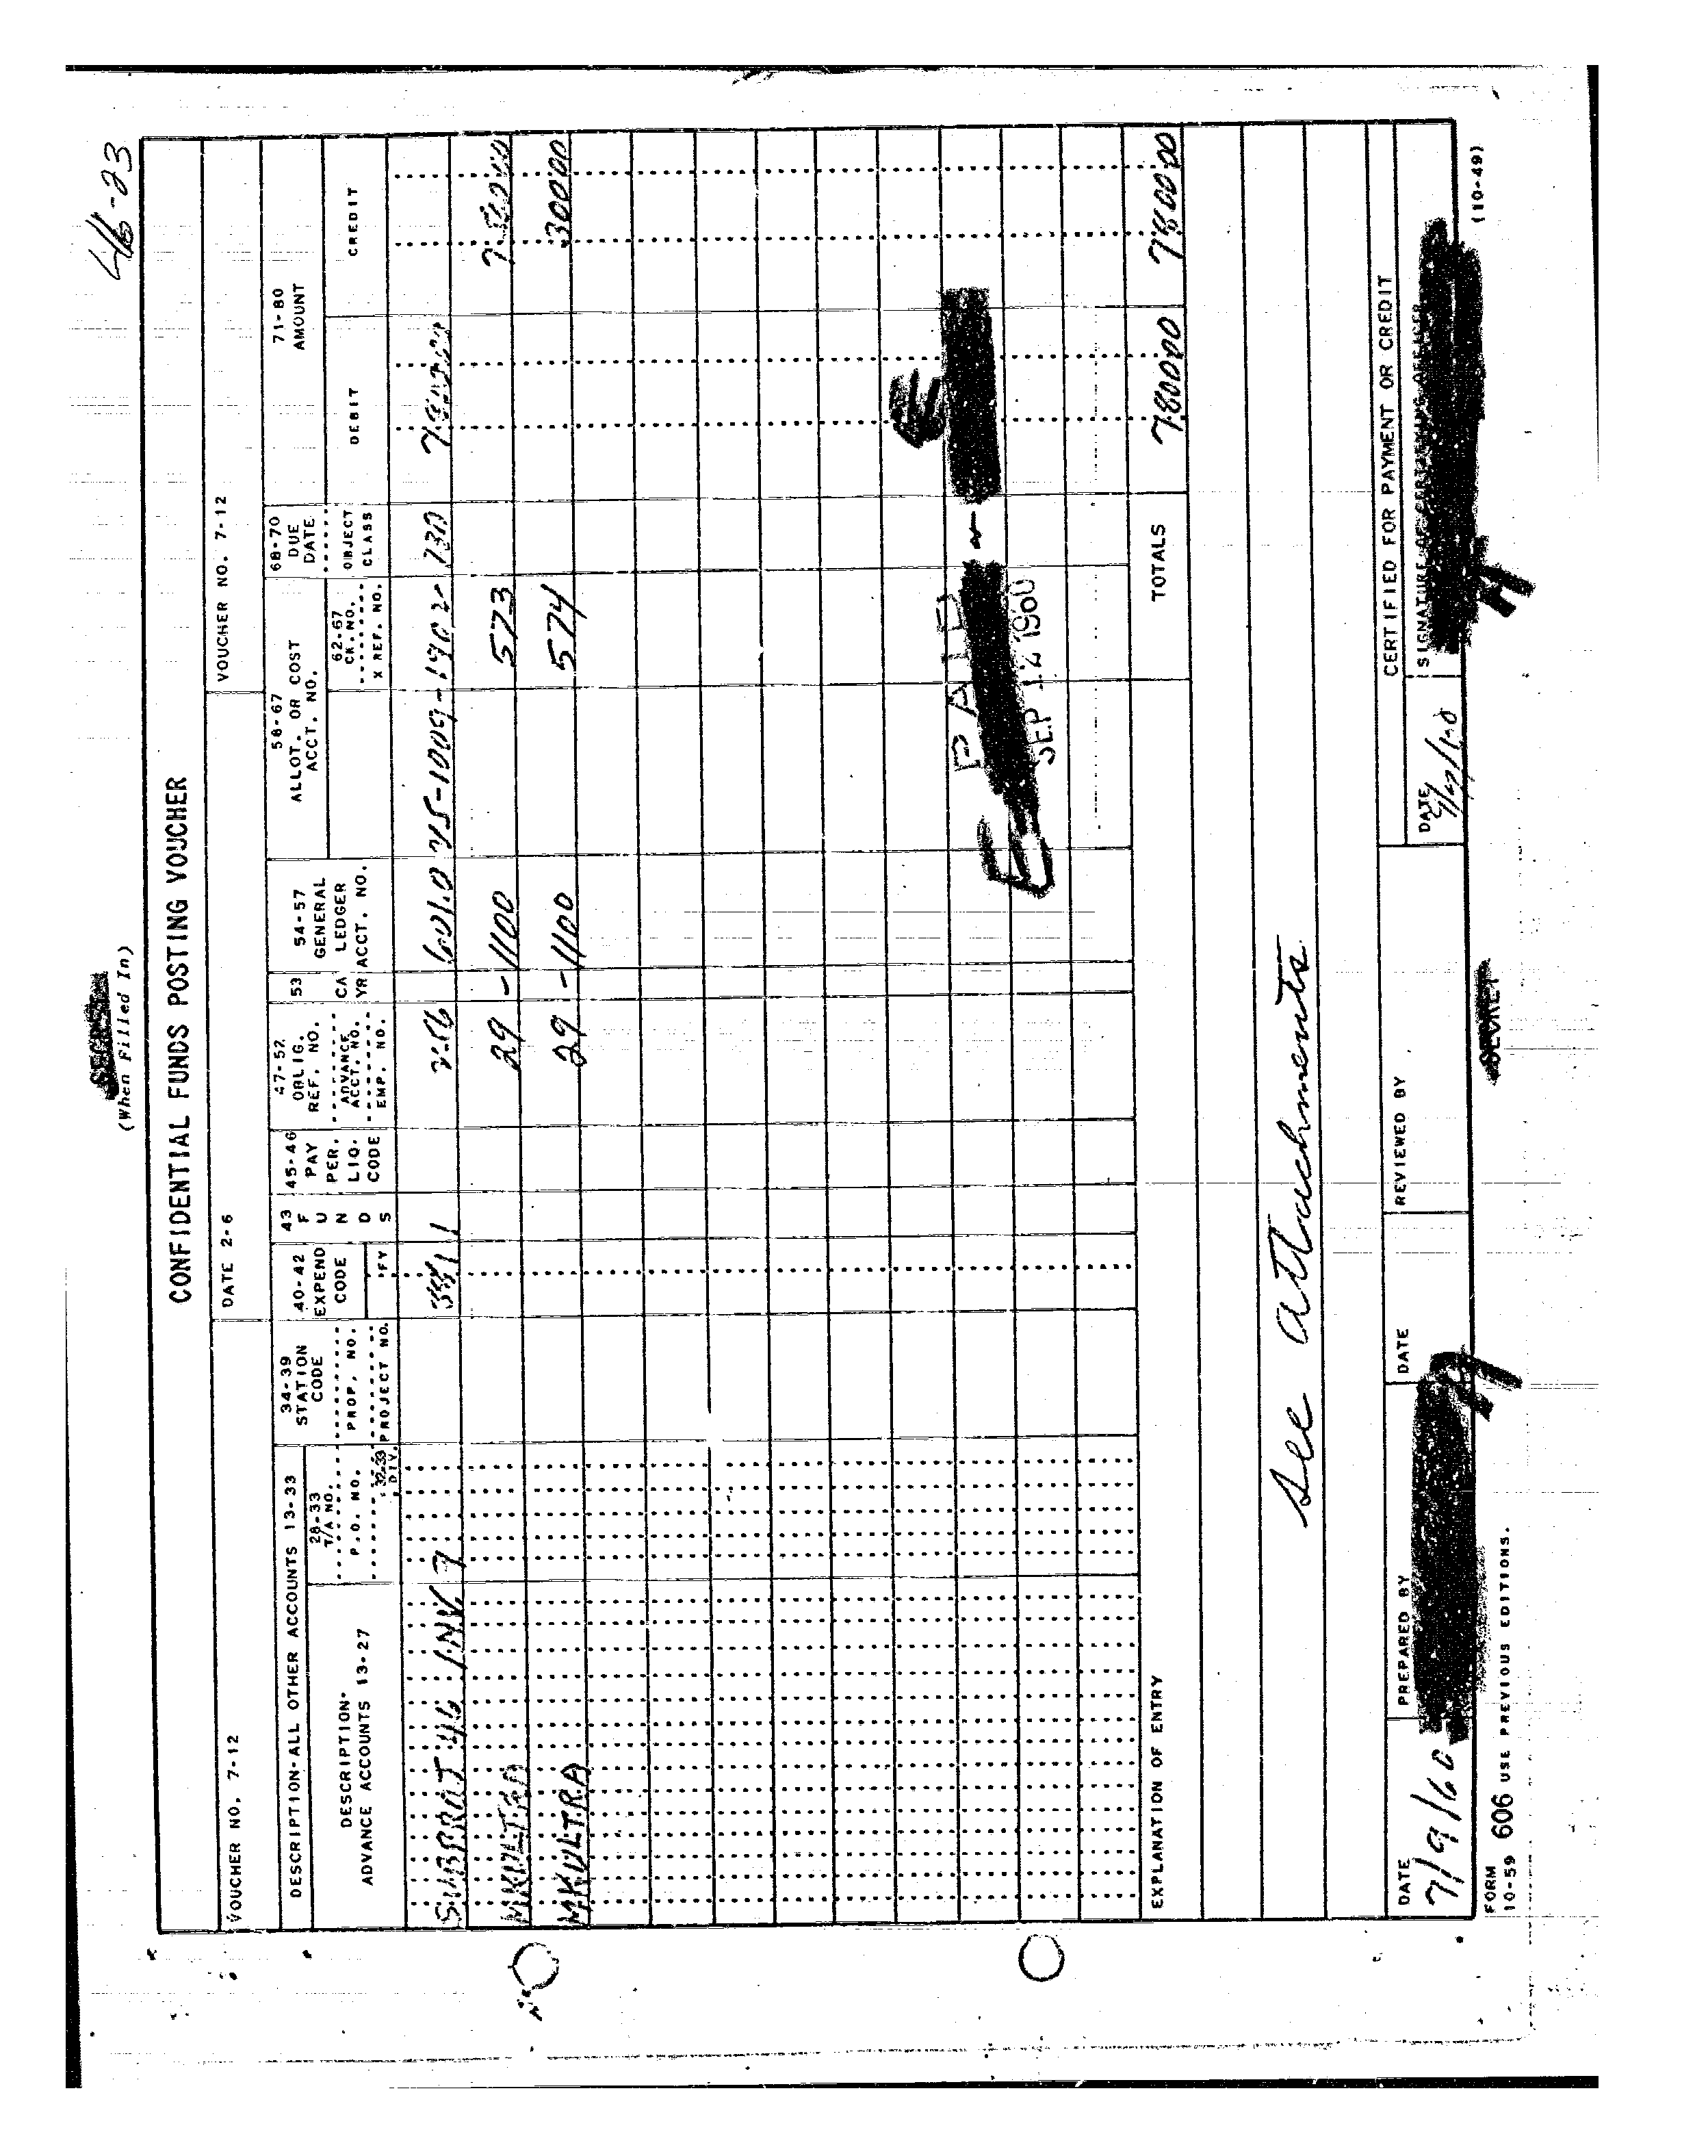 46-23
SECRET
(When Filled In)
CONFIDENTIAL FUNDS POSTING VOUCHER
VOUCHER NO. 7-12 DATE 2-6 VOUCHER NO. 7-12
DESCRIPTION-ALL OTHER ACCOUNTS 13-33
DESCRIPTION-
ADVANCE ACCOUNTS 13-27
28-33
T/A NO.
P.O. NO.
32-33
DIV.
34-39
STATION
CODE
PROP. NO.
PROJECT NO.
40-42
EXPEND
CODE
FY
43
F
U
N
D
S
45-46
PAY
PER.
LIQ.
CODE
47-52
OBLIG.
REF. NO.
ADVANCE
ACCT. NO.
EMP. NO.
53
CA
YR
54-57
GENERAL
LEDGER
ACCT. NO.
58-67
ALLOT. OR COST
ACCT. NO.
62-67
CK. NO.
X REF. NO.
68-70
DUE
DATE
OBJECT
CLASS
71-80
AMOUNT
DEBIT
CREDIT
SUBPROJ 46 INV 7 1 601.0 1009-1902 730 7800 00
MKULTRA 29 - 1100 573 7 500 00
MKULTRA 29 - 1100 574 300 00
PAID
SEP 12 1960
TOTALS 7800 00 7800 00
EXPLANATION OF ENTRY
See attachments
DATE PREPARED BY DATE REVIEWED BY
7/9/60
CERTIFIED FOR PAYMENT OR CREDIT
DATE SIGNATURE OF CERTIFYING OFFICER
FORM
10-59 606 USE PREVIOUS EDITIONS.
SECRET
(10-49)